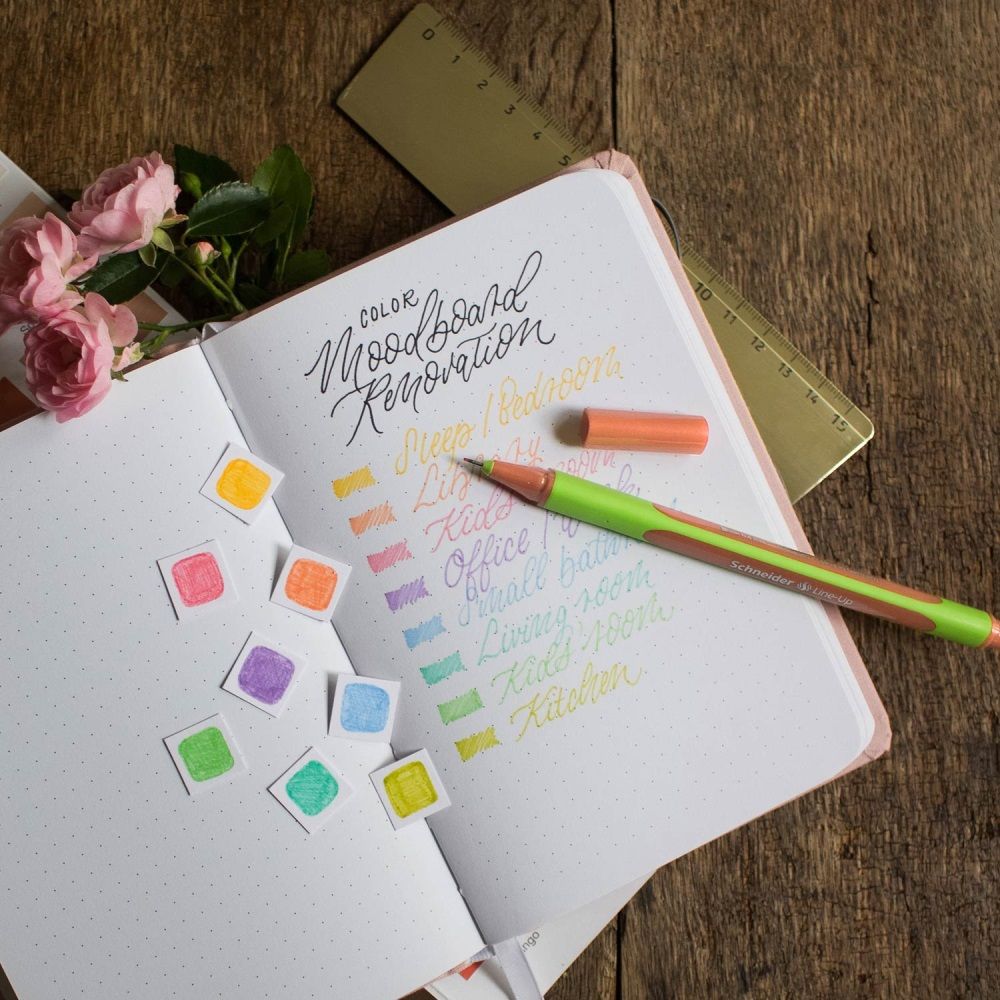 COLOR
Moodboard
Renovation
Sleep / Bedroom
Library
Kid's room
Office /
Small bath
Living room
Kid's room
Kitchen
Schneider Line-Up
0 1 2 3 4 5
10 11 12 13 14 15